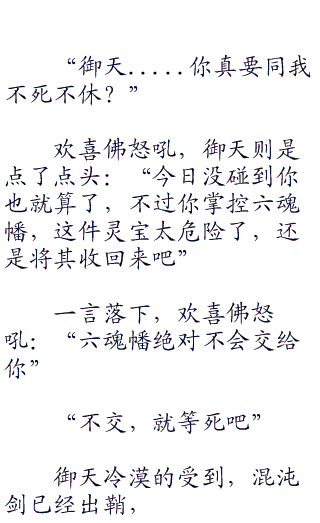 “御天.....你真要同我
不死不休？”
欢喜佛怒吼，御天则是
点了点头：“今日没碰到你
也就算了，不过你掌控六魂
幡，这件灵宝太危险了，还
是将其收回来吧”
一言落下，欢喜佛怒
吼：“六魂幡绝对不会交给
你”
“不交，就等死吧”
御天冷漠的受到，混沌
剑已经出鞘，